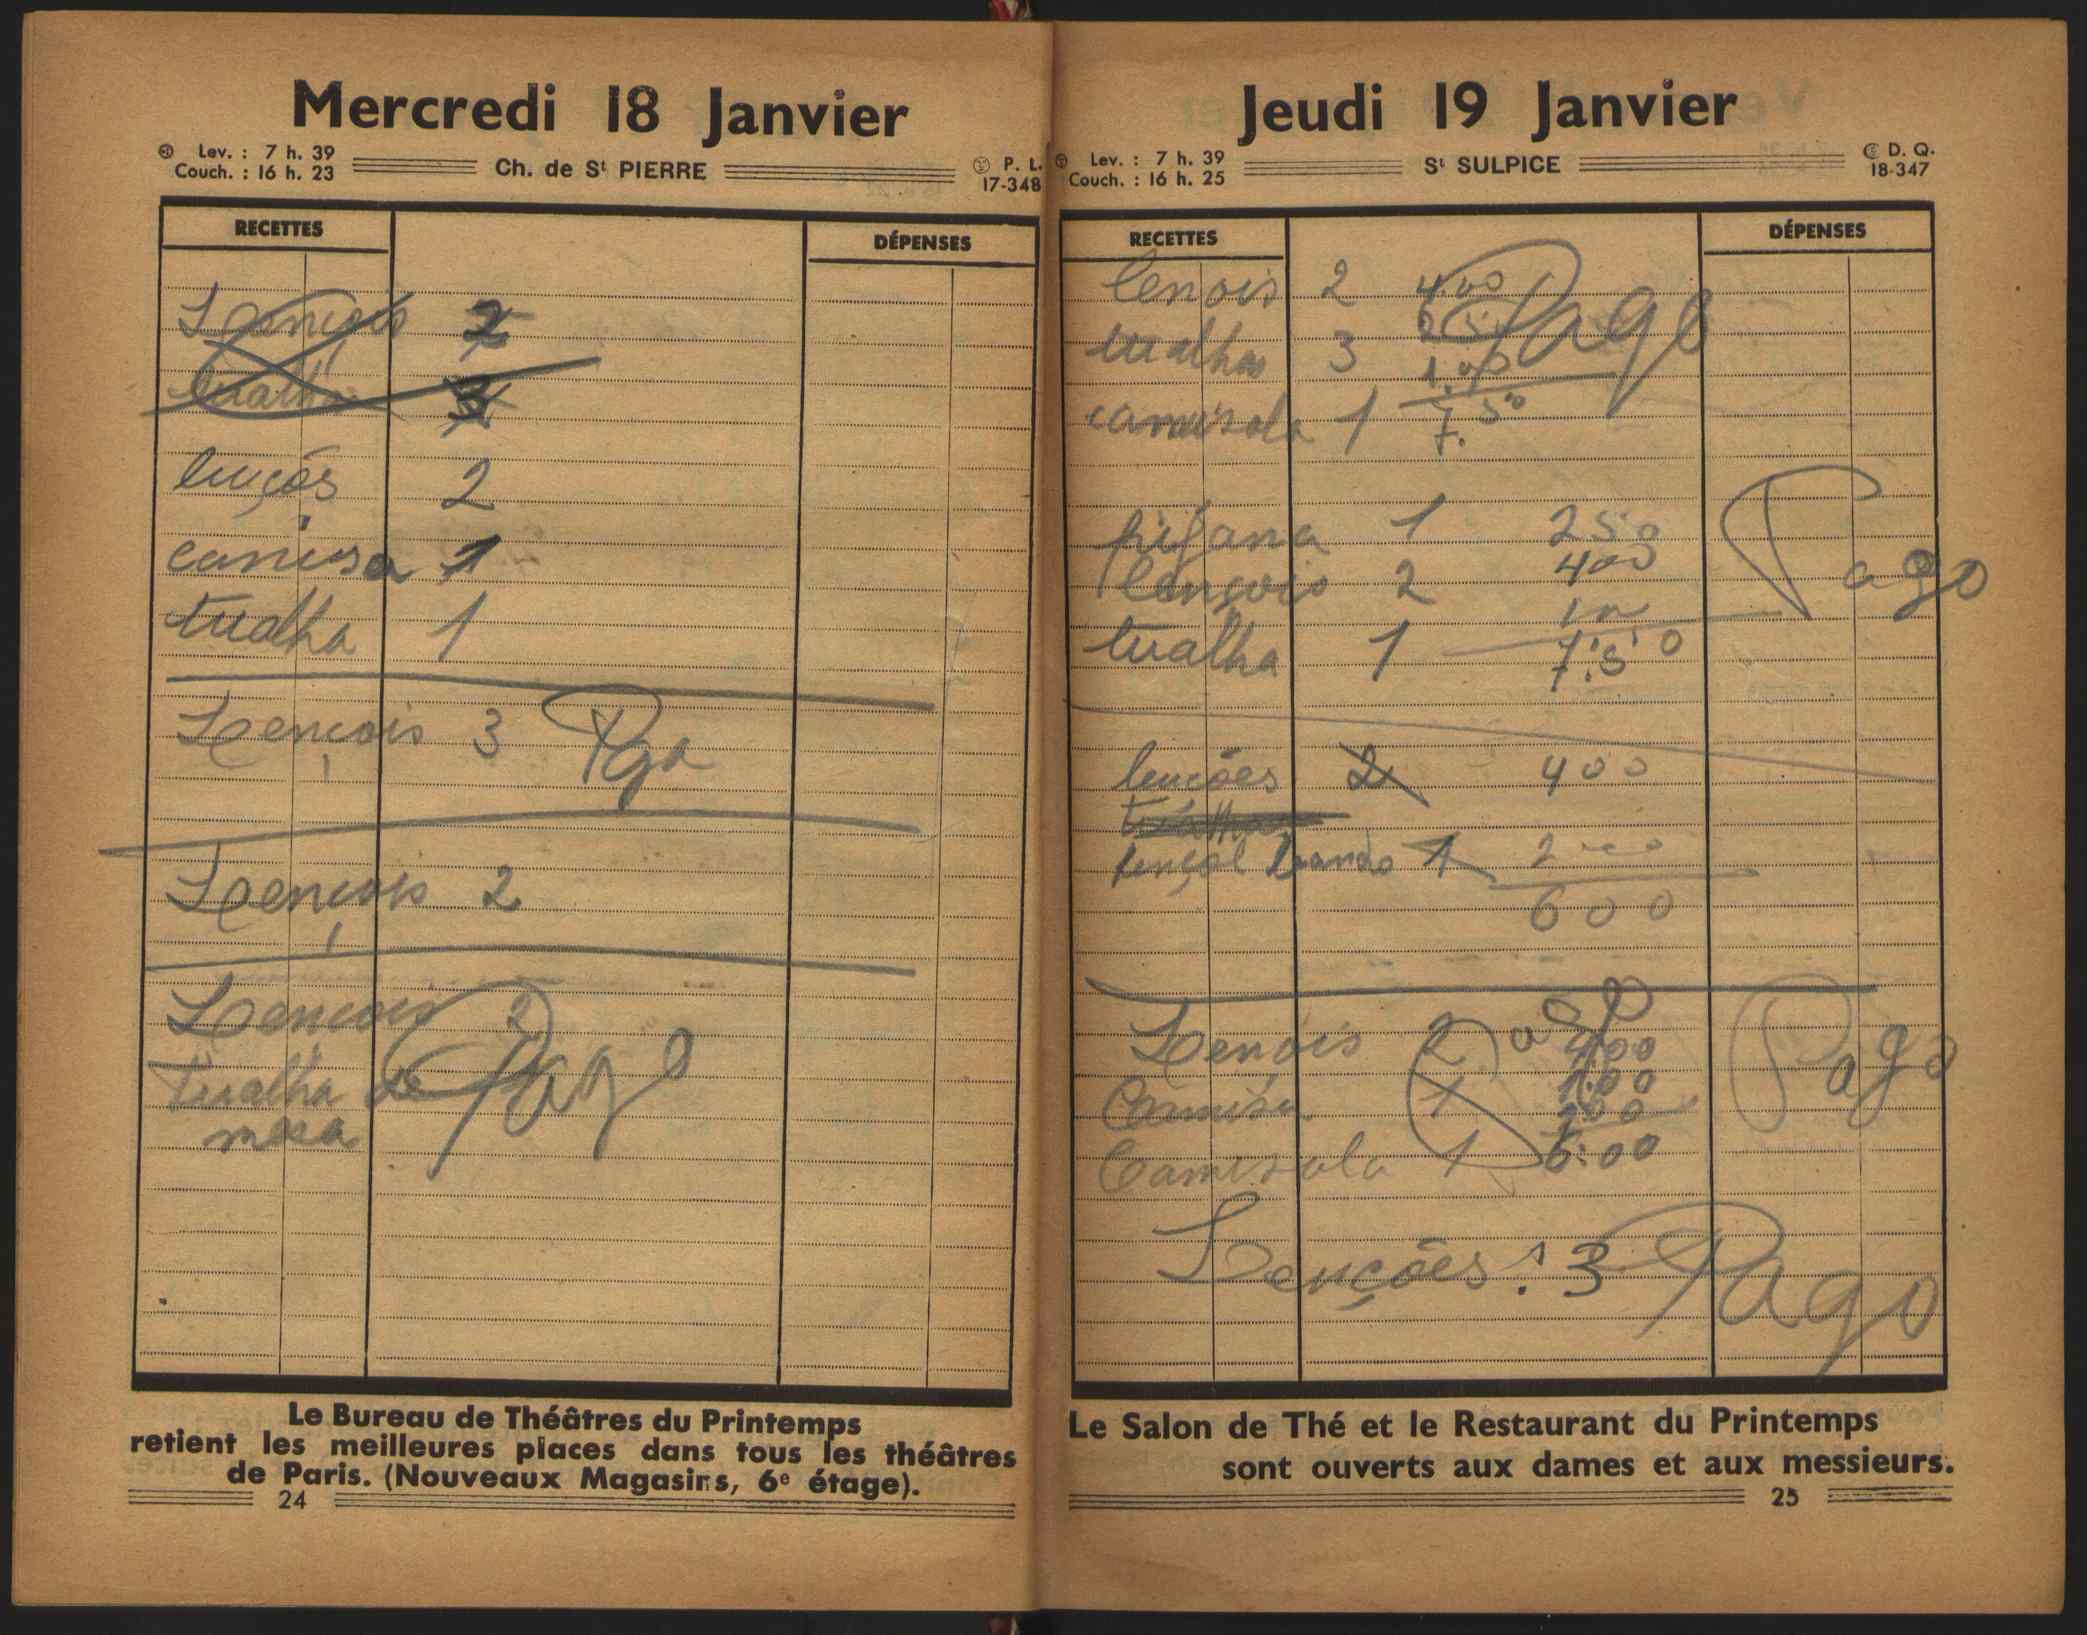 Mercredi 18 Janvier
Lev. : 7 h. 39
Couch. : 16 h. 23
Ch. de St PIERRE
P. L.
17-348
RECETTES
DÉPENSES
Lençois 2
tualha 3
lençós 2
camisa 1
tualha 1
Lençois 3 Pga
Lençois 2
Lençois 2
Tualha de Pago
mesa
Le Bureau de Théâtres du Printemps
retient les meilleures places dans tous les théâtres
de Paris. (Nouveaux Magasins, 6e étage).
24
Jeudi 19 Janvier
Lev. : 7 h. 39
Couch. : 16 h. 25
St SULPICE
D. Q.
18-347
RECETTES
DÉPENSES
lenois 2 4.00 Pago
tualhas 3
1.00
camisola 1 7.50
pijama 1 250
Lençois 2 400 Pago
tualha 1 7.50
lencões 2 400
lençol banho 1 200
600
Lenois 2 400 Pago
Camisa 1 1.00
Camisola 1 6.00
Lençóes: 3 Pago
Le Salon de Thé et le Restaurant du Printemps
sont ouverts aux dames et aux messieurs.
25